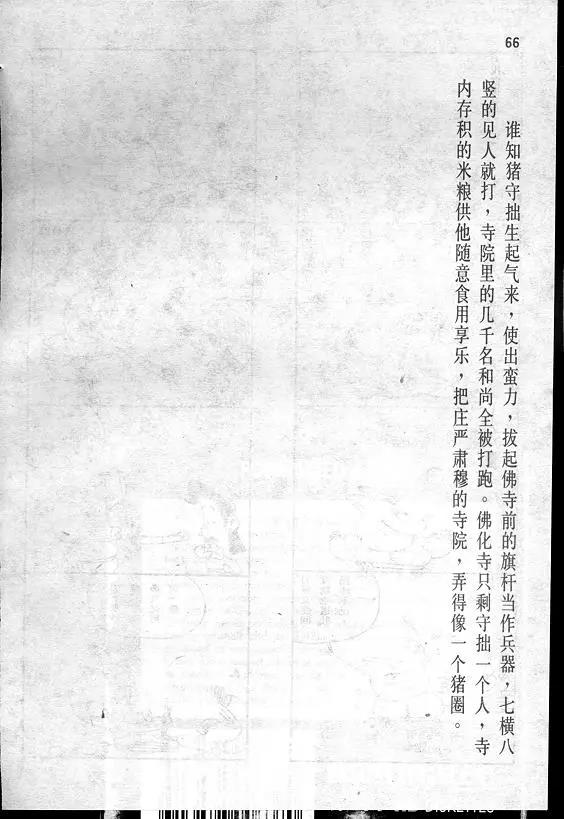 66
谁知猪守拙生起气来，使出蛮力，拔起佛寺前的旗杆当作兵器，七横八
竖的见人就打，寺院里的几千名和尚全被打跑。佛化寺只剩守拙一个人，寺
内存积的米粮供他随意食用享乐，把庄严肃穆的寺院，弄得像一个猪圈。